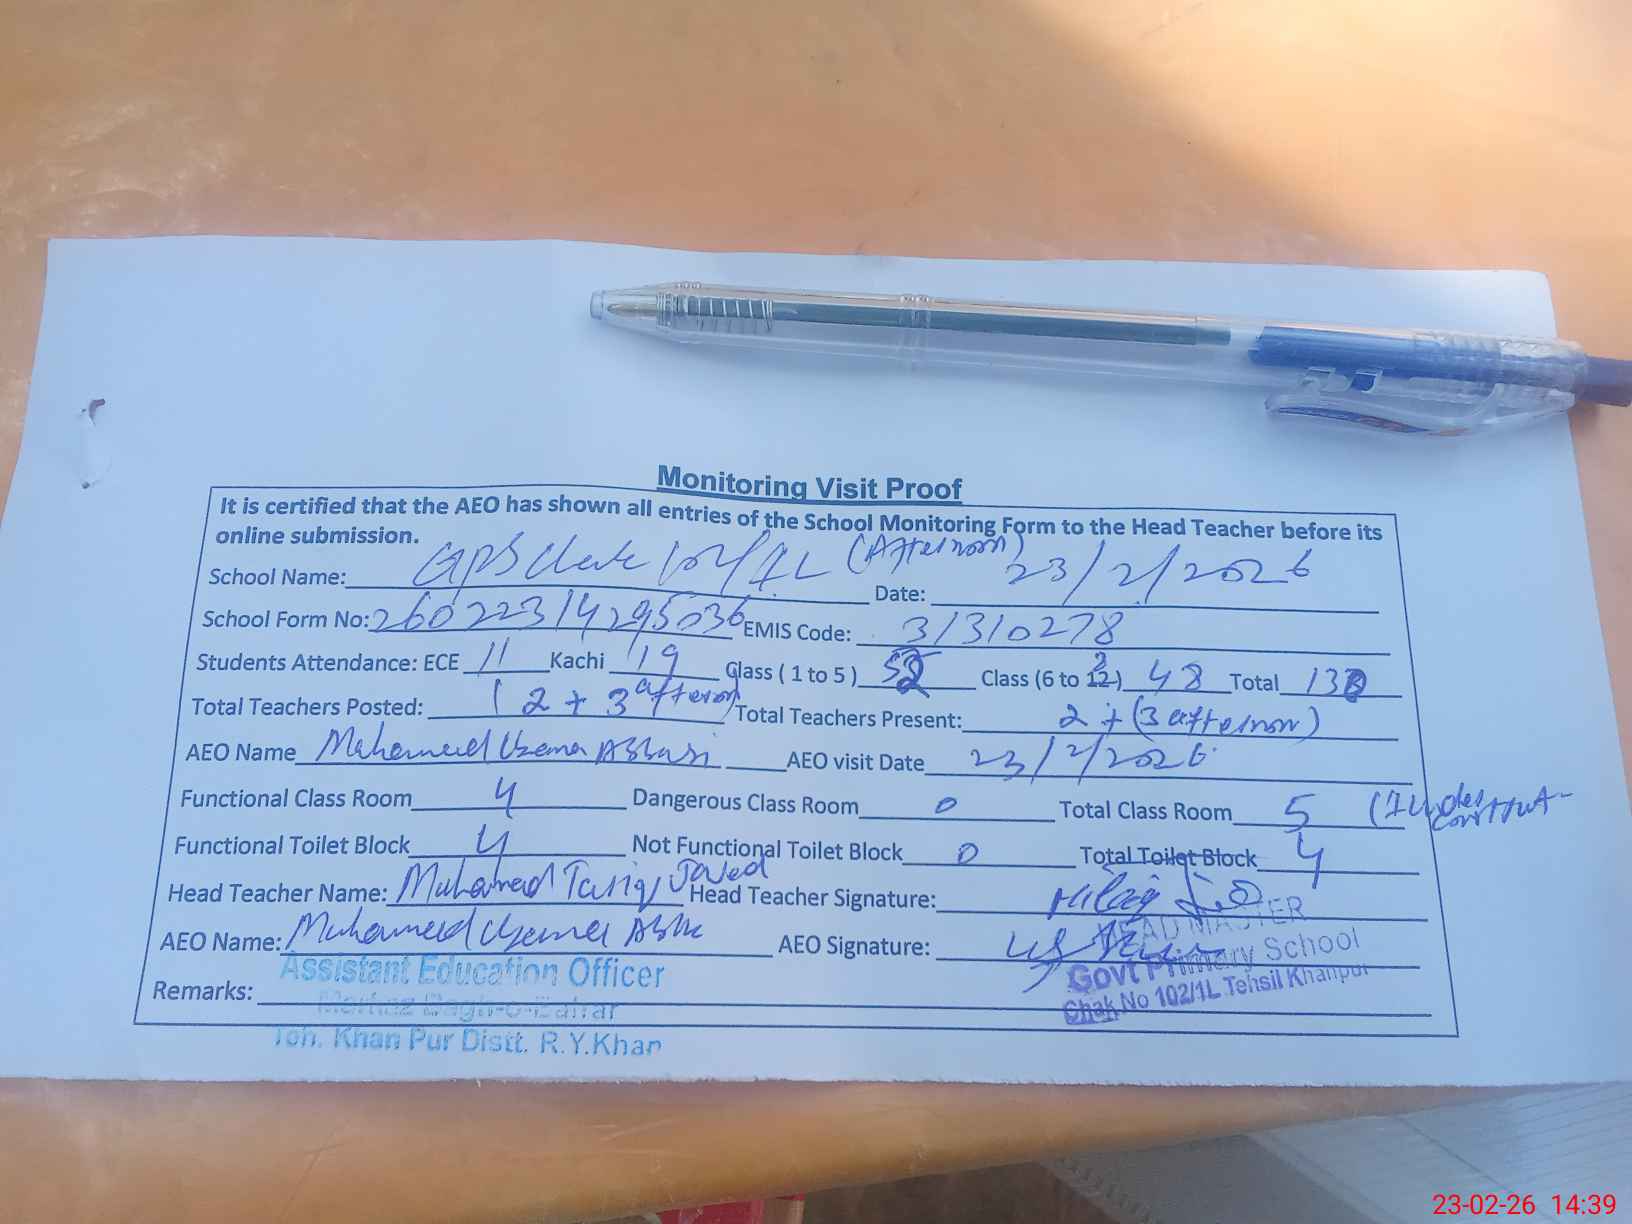 Monitoring Visit Proof
It is certified that the AEO has shown all entries of the School Monitoring Form to the Head Teacher before its
online submission.
School Name: GPS (Afternoon) Date: 23/2/2026
School Form No: 26022314295036 EMIS Code: 31310278
Students Attendance: ECE 11 Kachi 19 Glass ( 1 to 5 ) Class (6 to 12) 48 Total
Total Teachers Posted: 2 + 3 Total Teachers Present: 2 + (3 afternoon)
AEO Name AEO visit Date 23/2/2026
Functional Class Room 4 Dangerous Class Room 0 Total Class Room 5
Functional Toilet Block 4 Not Functional Toilet Block 0 Total Toilet Block 4
Head Teacher Name: Muhamed Tariq Javed Head Teacher Signature:
AEO Name: AEO Signature:
HEAD MASTER
Govt Primary School
Chak No 102/1L Tehsil Khanpur
Assistant Education Officer
Remarks:
Teh. Khan Pur Distt. R.Y.Khan
23-02-26 14:39